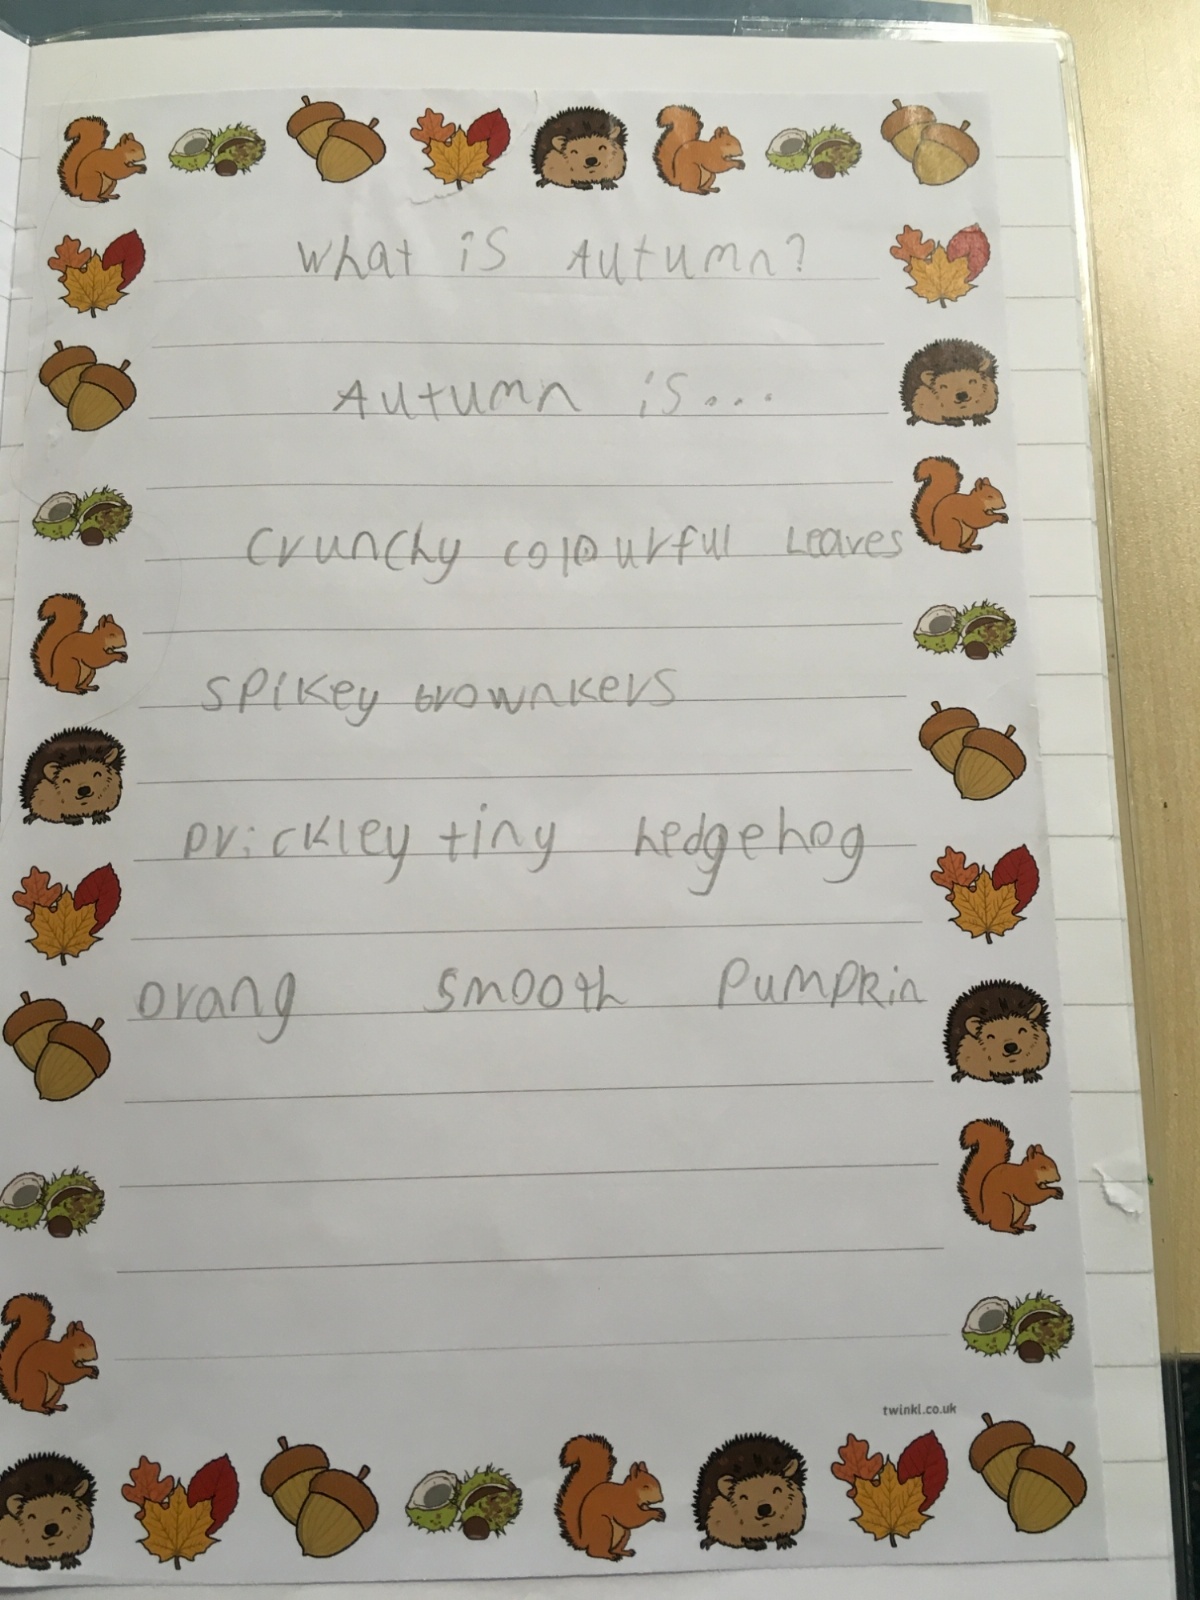 What is Autumn?
Autumn is...
crunchy colourful Leaves
spikey brownkers
prickley tiny hedgehog
orang smooth Pumpkin
twinkl.co.uk